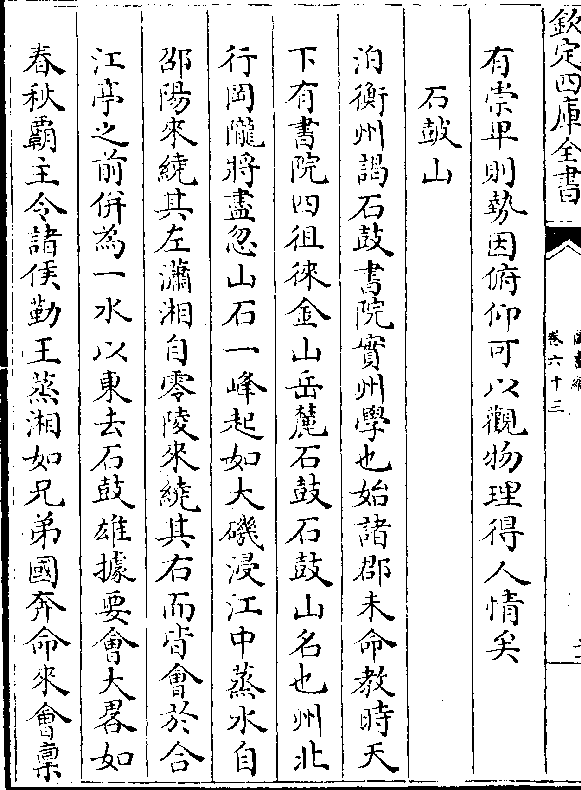 欽定四庫全書
卷六十三
有崇卑則勢因俯仰可以觀物理得人情矣
石鼓山
泊衡州謁石鼓書院實州學也始諸郡未命教時天
下有書院四徂徠金山岳麓石鼓石鼓山名也州北
行岡隴將盡忽山石一峰起如大磯浸江中蒸水自
邵陽來繞其左瀟湘自零陵來繞其右而皆會於合
江亭之前併為一水以東去石鼓雄據要會大畧如
春秋霸主令諸侯勤王蒸湘如兄弟國奔命來會稟